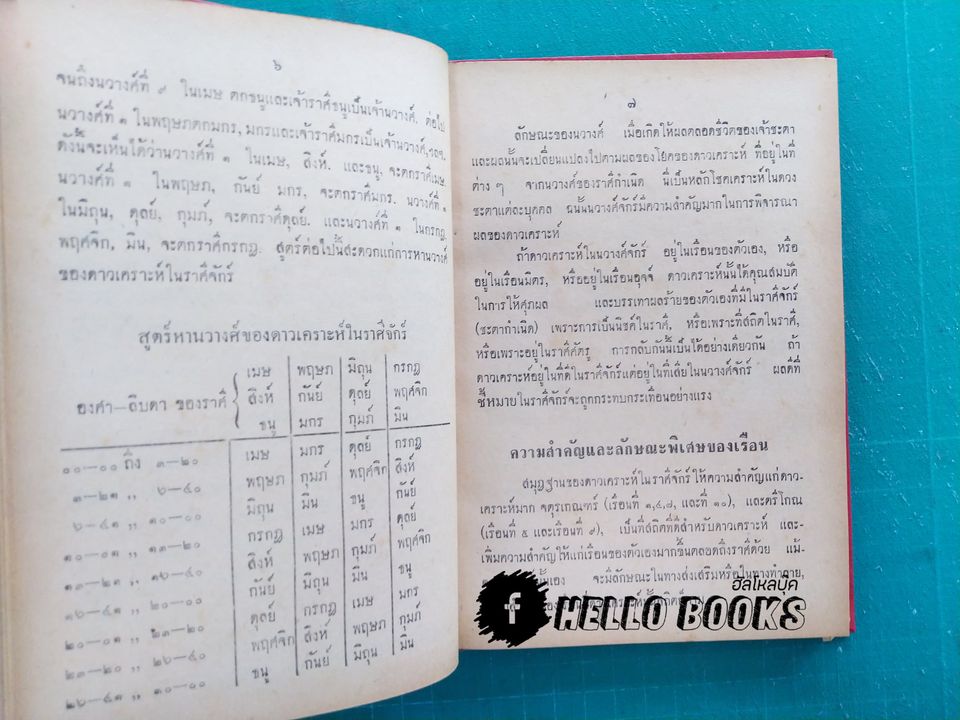 ๖
จนถึงนวางศ์ที่ ๙ ในเมษ ตกธนูและเจ้าราศีธนูเป็นเจ้านวางศ์. ต่อไป
นวางศ์ที่ ๑ ในพฤษภตกมกร, มกรและเจ้าราศีมกรเป็นเจ้านวางศ์,ฯลฯ.
ดังนี้จะเห็นได้ว่านวางศ์ที่ ๑ ในเมษ, สิงห์. และธนู, จะตกราศีเมษ.
นวางศ์ที่ ๑ ในพฤษภ, กันย์ มกร, จะตกราศีมกร. นวางศ์ที่ ๑
ในมิถุน, ตุลย์, กุมภ์, จะตกราศีตุลย์. และนวางศ์ที่ ๑ ในกรกฎ,
พฤศจิก, มีน, จะตกราศีกรกฎ. สูตร์ต่อไปนี้สะดวกแก่การหานวางศ์
ของดาวเคราะห์ในราศีจักร์
สูตร์หานวางศ์ของดาวเคราะห์ในราศีจักร์
เมษ พฤษภ มิถุน กรกฎ
องศา—ลิบดา ของราศี สิงห์ กันย์ ตุลย์ พฤศจิก
ธนู มกร กุมภ์ มีน
๐๐—๐๐ ถึง ๓—๒๐ เมษ มกร ตุลย์ กรกฎ
๓—๒๑ ,, ๖—๔๐ พฤษภ กุมภ์ พฤศจิก สิงห์
๖—๔๑ ,, ๑๐—๐๐ มิถุน มีน ธนู กันย์
๑๐—๐๑ ,, ๑๓—๒๐ กรกฎ เมษ มกร ตุลย์
๑๓—๒๑ ,, ๑๖—๔๐ สิงห์ พฤษภ กุมภ์ พฤศจิก
๑๖—๔๑ ,, ๒๐—๐๐ กันย์ มิถุน มีน ธนู
๒๐—๐๑ ,, ๒๓—๒๐ ตุลย์ กรกฎ เมษ มกร
๒๓—๒๐ ,, ๒๖—๔๐ พฤศจิก สิงห์ พฤษภ กุมภ์
๒๖—๔๑ ,, ๓๐—๐๐ ธนู กันย์ มิถุน มีน
๗
ลักษณะของนวางศ์ เมื่อเกิดให้ผลตลอดชีวิตของเจ้าชะตา
และผลนั้นจะเปลี่ยนแปลงไปตามผลของโยคของดาวเคราะห์ ที่อยู่ในที่
ต่าง ๆ จากนวางศ์ของราศีกำเนิด นี่เป็นหลักโชคเคราะห์ในดวง
ชะตาแต่ละบุคคล ฉนั้นนวางศ์จักร์มีความสำคัญมากในการพิจารณา
ผลของดาวเคราะห์
ถ้าดาวเคราะห์ในนวางศ์จักร์ อยู่ในเรือนของตัวเอง, หรือ
อยู่ในเรือนมิตร, หรืออยู่ในเรือนอุจจ์ ดาวเคราะห์นั้นได้คุณสมบัติ
ในการให้ศุภผล และบรรเทาผลร้ายของตัวเองที่มีในราศีจักร์
(ชะตากำเนิด) เพราะการเป็นนิชค์ในราศี, หรือเพราะที่สถิตในราศี,
หรือเพราะอยู่ในราศีศัตรู การกลับกันนี้เป็นได้อย่างเดียวกัน ถ้า
ดาวเคราะห์อยู่ในที่ดีในราศีจักร์แต่อยู่ในที่เสียในนวางศ์จักร์ ผลดีที่
ชี้หมายในราศีจักร์จะถูกกระทบกระเทือนอย่างแรง
ความสำคัญและลักษณะพิเศษของเรือน
สมุฏฐานของดาวเคราะห์ในราศีจักร์ให้ความสำคัญแก่ดาว-
เคราะห์มาก จตุรเกณฑร์ (เรือนที่ ๑,๔,๗, และที่ ๑๐), และตรีโกณ
(เรือนที่ ๕ และเรือนที่ ๙), เป็นที่สถิตที่ดีสำหรับดาวเคราะห์ และ-
เพิ่มความสำคัญให้แก่เรือนของตัวเองมากขึ้นตลอดถึงราศีด้วย แม้-
นี้เอง จะมีลักษณะในทางส่งเสริมหรือในทางทำลาย,
ฮัลโหลบุ๊ค
f HELLO BOOKS